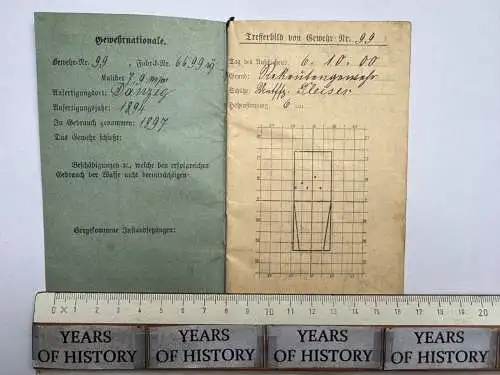 Gewehrnationale.
Gewehr-Nr. 99. Fabrik-Nr. 6699
Kaliber 7,9 m/m
Anfertigungsort: Danzig
Anfertigungsjahr: 189
In Gebrauch genommen: 1897
Das Gewehr schießt:
Beschädigungen ec., welche den erfolgreichen
Gebrauch der Waffe nicht beeinträchtigen:
Vorgekommene Instandsetzungen:
Trefferbild von Gewehr Nr. 99
Tag des Anschießens: 6. 10. 00
Grund: Rekrutengewehr
Schütze:
6 cm
0 X 1 2 3 4 5 6 7 8 9 10 11 12 13 14 15 16 17 18 19 20
YEARS OF HISTORY
YEARS OF HISTORY
YEARS OF HISTORY
YEARS OF HISTORY